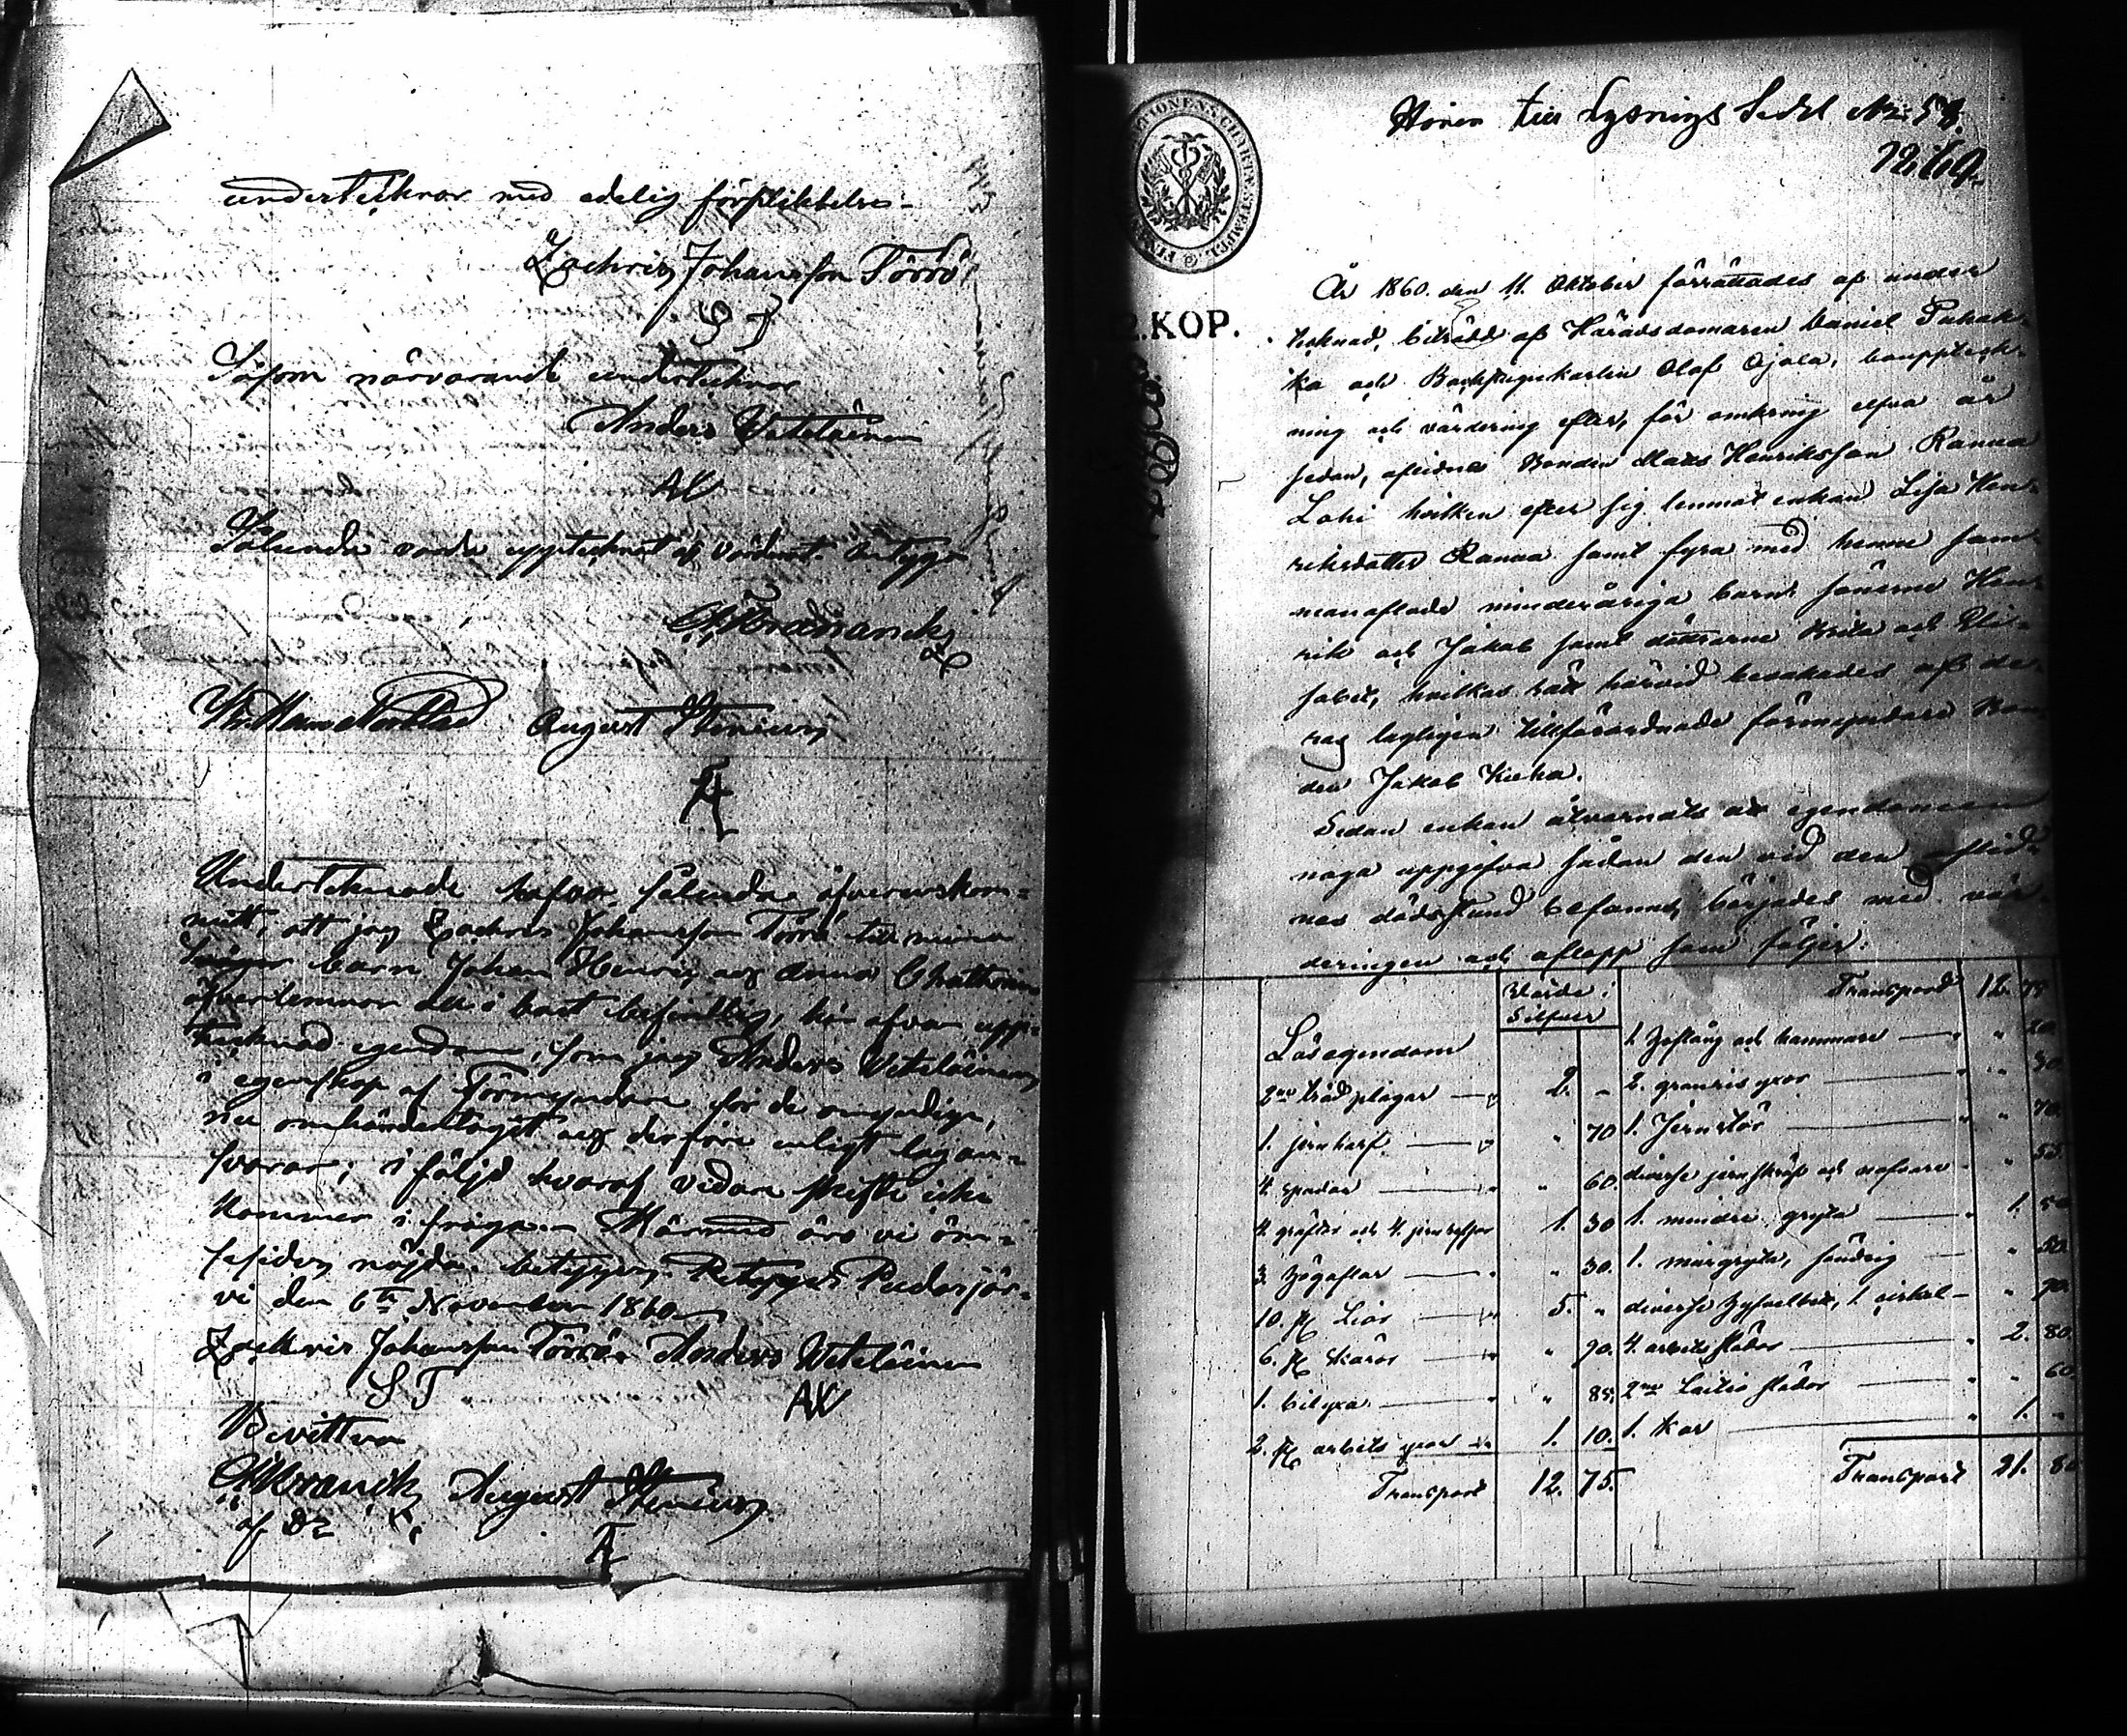 undertecknar med edelig förpliktelse.
Zachris Johansson Törrö
S T
Såsom närvarande undertecknar
Anders Weteläinen
AW
Sålunda vara upptecknat och värderat betyga
August Stenius
Undertecknade hafva sålunda öfverenskom-
mitt, att jag Zachris Johansson Törrö till mina
barn Johan Henric och Anna Chatharina
öfverlemnar de i boet befintlig, här ofvan upp-
tecknad egendom, som jag Anders Weteläinen
i egenskap af Förmyndare för de omyndiga,
nu omhändertagit och derföre enligt lag an-
svarar; i följd hvaraf vidare skifte icke
kommer i fråga. Härmed äro vi öm-
sesides nöjda betyges. Pudasjär-
vi den 6te November 1860
Zachris Johansson Törrö Anders Weteläinen
S T AW
Bevittna
August Stenius
Hörer till Lysnings Sedel No 58.
12/69.
2.KOP.
År 1860. den 11. Oktober förrättades af under
tecknad, biträdd af Häradsdomaren Daniel Pahak-
ka och Backstugukarlen Olof Ojala, bouppteck-
ning och värdering efter, för omkring elfva år
sedan, aflidne Bonden Mats Henriksson Ranua
Lohi hvilken efter sig lemnat enkan Lisa Hen-
riksdotter Ranua samt fyra med henne sam-
manaflade minderåriga barn: sönerne Hen-
rik och Jakob samt döttrarne Brita och Eli-
sabet, hvilkas rätt härvid bevakades af de-
ras lagligen tillförordnade förmyndare Bon-
den Jakob Kieha.
Sedan enkan åtvarnats at egendomen
noga uppgifva sådan den vid den aflid-
nes dödsstund befanns, börjades med vär-
deringen och aflopp som följer:
Värde i
Silfver
Transport 12. 75
Lösegendom
1. Hoftång och hammare " 20
2ne träd plogar 2. -
2. granrisyxor " 30
1. jernharf " 70
1. Jernstör " 70
4. spadar " 60.
diverse jernskräp och nafvare " 55
4. gräftor och 4. 1. 30
1. mindre gryta 1. 50
3. högaflar " 30.
1. murgryta, söndrig " 50
10. st Liar 5. "
diverse 1. cirkel " 70
6. st Skäror " 90.
4. arbets slädor 2. 80
1. bilyxa " 85.
2ne Laitio slädor " 60
2. st arbets yxor 1. 10.
1. kar 1. "
Transport 12. 75.
Transport 21. 80